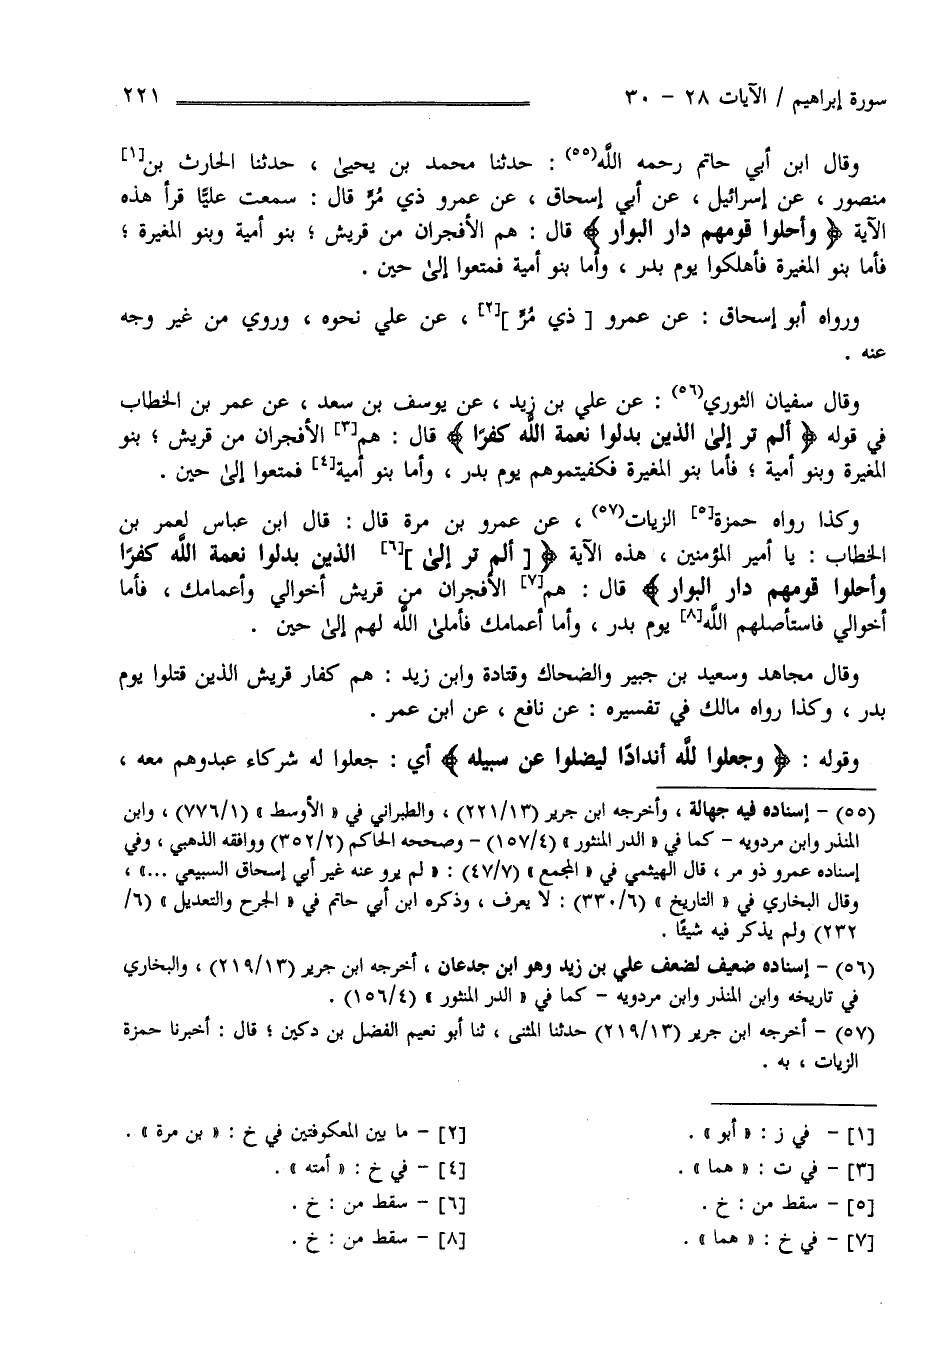 سورة إبراهيم / الآيات ٢٨ - ٣٠ ٢٢١
وقال ابن أبي حاتم رحمه اللَّه(٥٥) : حدثنا محمد بن يحيىٰ ، حدثنا الحارث بن[١]
منصور ، عن إسرائيل ، عن أبي إسحاق ، عن عمرو ذي مُرٍّ قال : سمعت عليًّا قرأ هذه
الآية ﴿ وأحلوا قومهم دار البوار ﴾ قال : هم الأفجران من قريش ؛ بنو أمية وبنو المغيرة ؛
فأما بنو المغيرة فأهلكوا يوم بدر ، وأما بنو أمية فمتعوا إلىٰ حين .
ورواه أبو إسحاق : عن عمرو [ ذي مُرٍّ ][٢] ، عن علي نحوه ، وروي من غير وجه
عنه .
وقال سفيان الثوري(٥٦) : عن علي بن زيد ، عن يوسف بن سعد ، عن عمر بن الخطاب
في قوله ﴿ ألم تر إلىٰ الذين بدلوا نعمة اللَّه كفرًا ﴾ قال : هم[٣] الأفجران من قريش ؛ بنو
المغيرة وبنو أمية ؛ فأما بنو المغيرة فكفيتموهم يوم بدر ، وأما بنو أمية[٤] فمتعوا إلىٰ حين .
وكذا رواه حمزة[٥] الزيات(٥٧) ، عن عمرو بن مرة قال : قال ابن عباس لعمر بن
الخطاب : يا أمير المؤمنين ، هذه الآية ﴿ [ ألم تر إلىٰ ][٦] الذين بدلوا نعمة اللَّه كفرًا
وأحلوا قومهم دار البوار ﴾ قال : هم[٧] الأفجران من قريش أخوالي وأعمامك ، فأما
أخوالي فاستأصلهم اللَّه[٨] يوم بدر ، وأما أعمامك فأملىٰ اللَّه لهم إلىٰ حين .
وقال مجاهد وسعيد بن جبير والضحاك وقتادة وابن زيد : هم كفار قريش الذين قتلوا يوم
بدر ، وكذا رواه مالك في تفسيره : عن نافع ، عن ابن عمر .
وقوله : ﴿ وجعلوا للَّه أندادًا ليضلوا عن سبيله ﴾ أي : جعلوا له شركاء عبدوهم معه ،
(٥٥) - إسناده فيه جهالة ، وأخرجه ابن جرير (٢٢١/١٣) ، والطبراني في « الأوسط » (٧٧٦/١) ، وابن
المنذر وابن مردويه - كما في « الدر المنثور » (١٥٧/٤) - وصححه الحاكم (٣٥٢/٢) ووافقه الذهبي ، وفي
إسناده عمرو ذو مر ، قال الهيثمي في « المجمع » (٤٧/٧) : « لم يرو عنه غير أبي إسحاق السبيعي ...» ،
وقال البخاري في « التاريخ » (٣٣٠/٦) : لا يعرف ، وذكره ابن أبي حاتم في « الجرح والتعديل » (٦/
٢٣٢) ولم يذكر فيه شيئًا .
(٥٦) - إسناده ضعيف لضعف علي بن زيد وهو ابن جدعان ، أخرجه ابن جرير (٢١٩/١٣) ، والبخاري
في تاريخه وابن المنذر وابن مردويه - كما في « الدر المنثور » (١٥٦/٤) .
(٥٧) - أخرجه ابن جرير (٢١٩/١٣) حدثنا المثنى ، ثنا أبو نعيم الفضل بن دكين ؛ قال : أخبرنا حمزة
الزيات ، به .
[١] - في ز : « أبو » . [٢] - ما بين المعكوفتين في خ : « بن مرة » .
[٣] - في ت : « هما » . [٤] - في خ : « أمته » .
[٥] - سقط من : خ . [٦] - سقط من : خ .
[٧] - في خ : « هما » . [٨] - سقط من : خ .